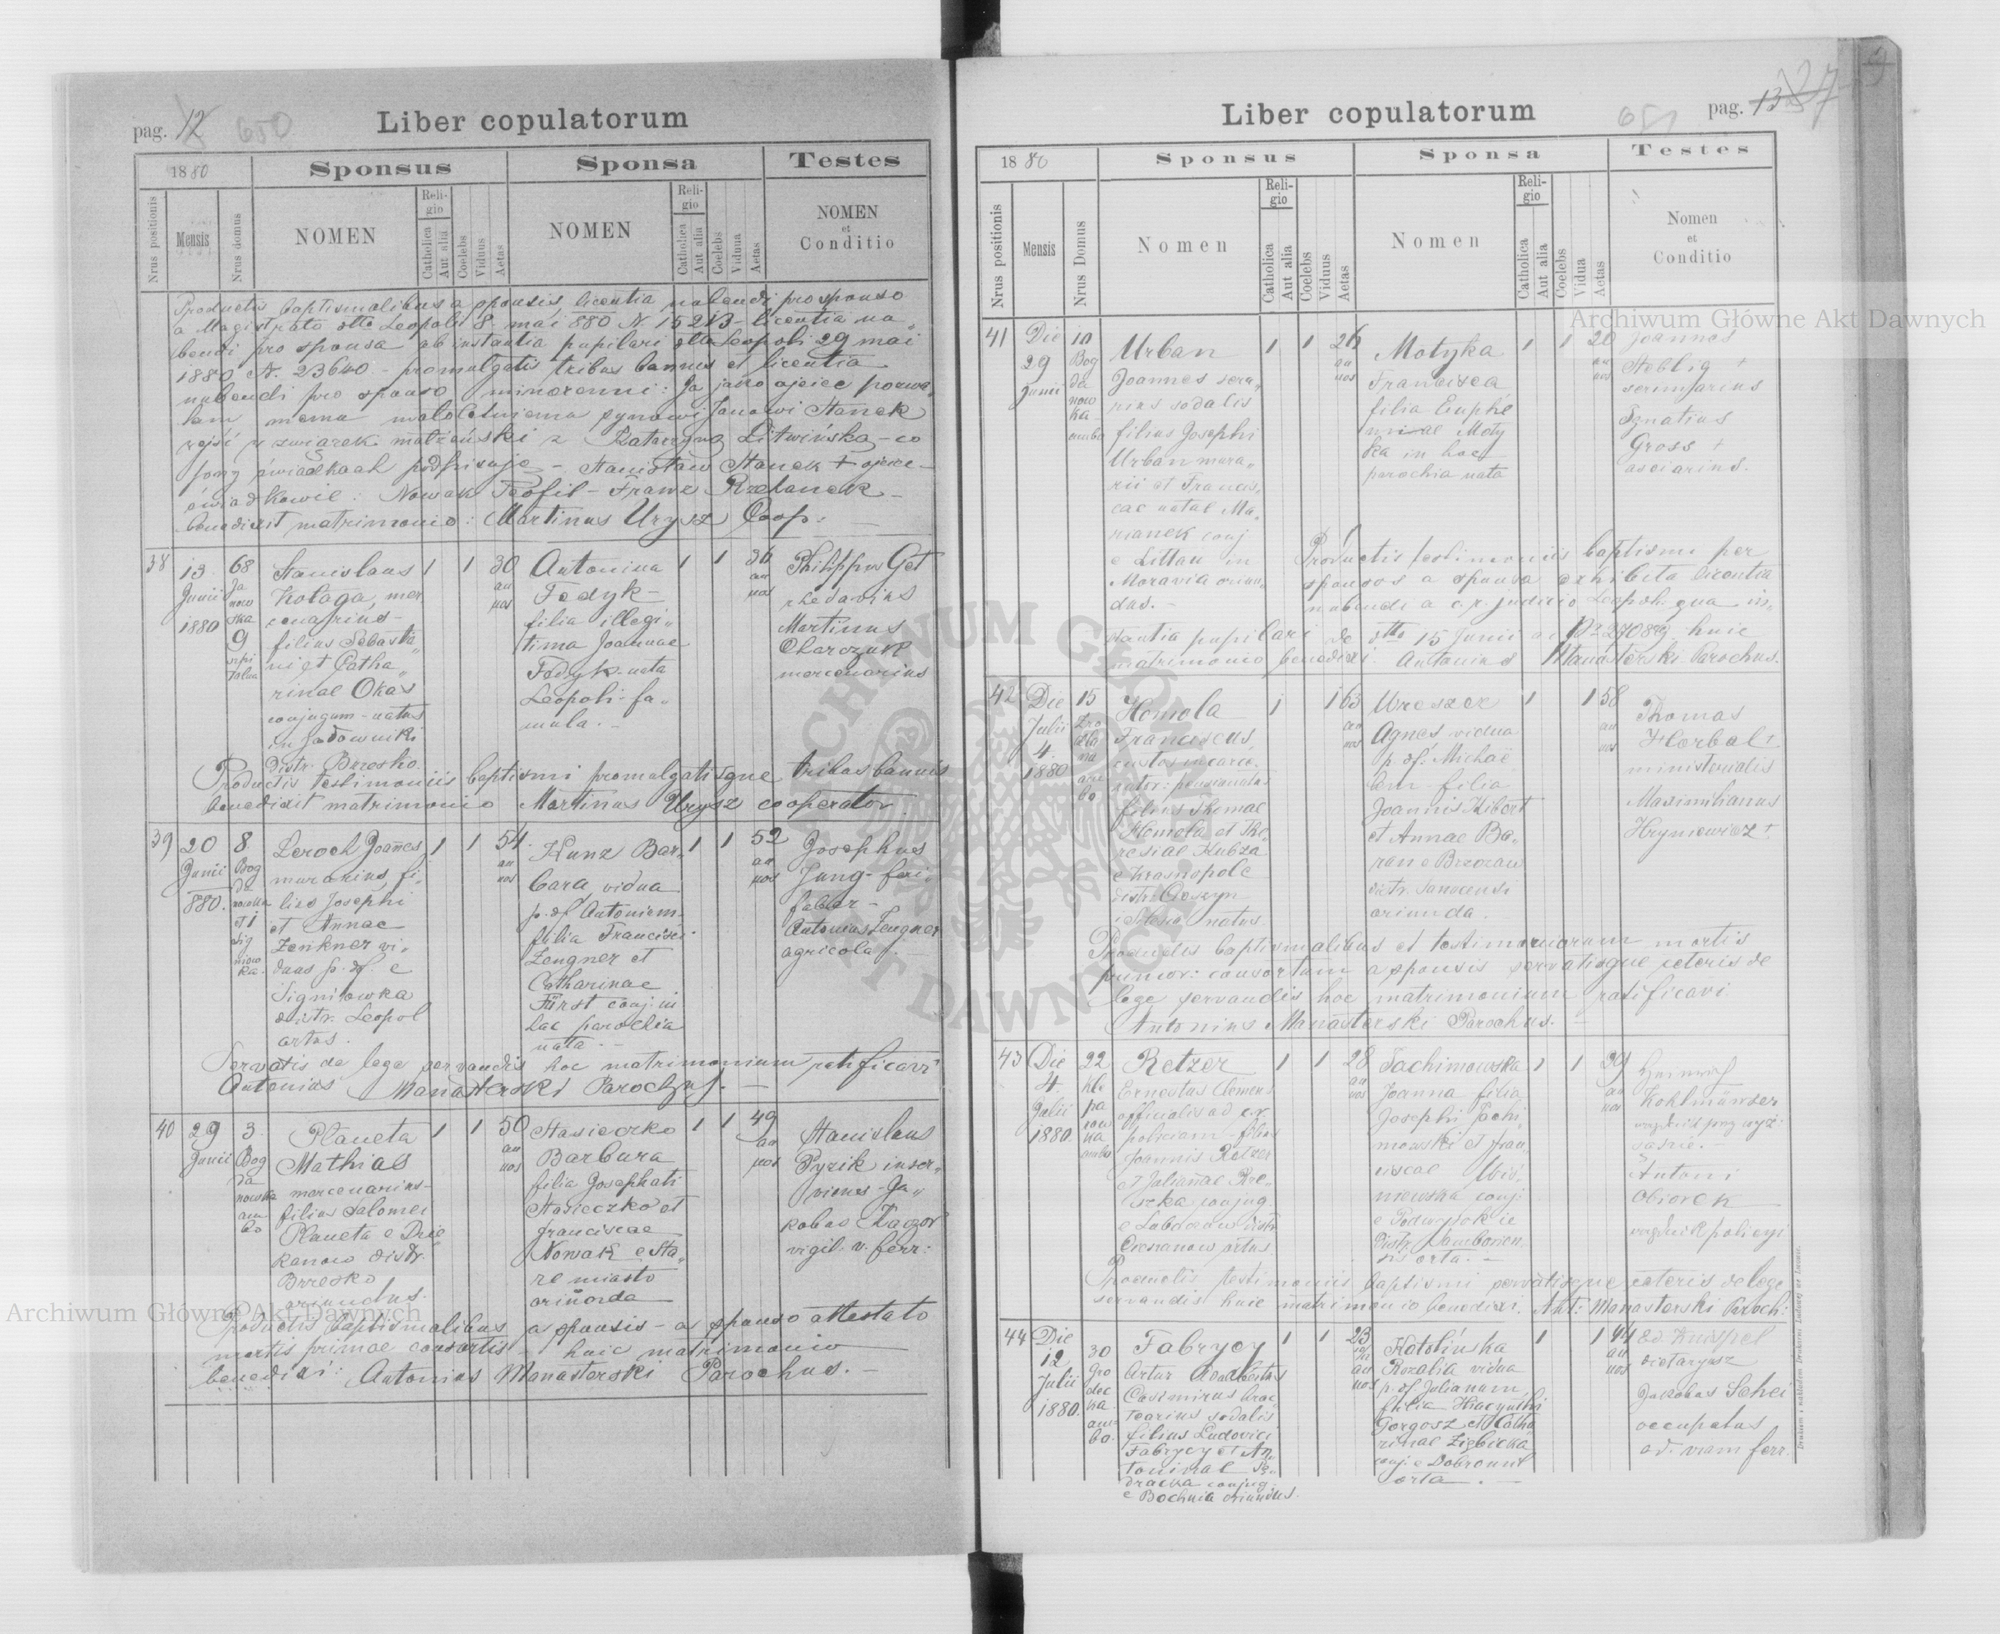 pag. 12 650
Liber copulatorum
1880
Sponsus
Sponsa
Testes
Nrus positionis
Mensis
Nrus domus
NOMEN
Religio
Catholica
Aut alia
Coelebs
Viduus
Aetas
NOMEN
Religio
Catholica
Aut alia
Coelebs
Vidua
Aetas
NOMEN
et
Conditio
Productis baptismalibus a sponsis, licentia nubendi pro sponso
a Magistratu dtto Leopoli 8. mai 880 N. 15213 - licentia nu„
bendi pro sponsa ab instantia pupilari dtto Leopoli 29 mai
1880 N. 23640 - promulgatis tribus bannis et licentia
nubendi pro sponso minorenni: Ja jako ojciec pozwa
lam memu małoletniemu synowi Janowi Stanek
wejść w związek małżeński z Katarzyną Litwińską - co
przy świadkach podpisuję - Stanisław Stanek + ojciec -
świadkowie: Nowak Teofil - Franz Rzehanek -
benedixit matrimonio: Martinus Urysz Coop: -
38
13
Junii
1880
68
Ja
now
ska
9
sepi
talna
Stanislaus
Kołaga, mer
cenarius -
filius Sebastia„
ni et Catha„
rinae Okas
conjugum - natus
in Jadowniki
distr. Brzesko.
1
1
30
an
nos
Antonina
Fedyk -
filia illegi„
tima Joannae
Fedyk - nata
Leopoli - fa„
mula. -
1
1
36
an
nos
Philippus Get
rhedarius
Martinus
Olarczuk
mercenarius
Productis testimoniis baptismi promulgatisque tribus bannis
benedixit matrimonio Martinus Urysz cooperator.
39
20
Junii
880.
8.
Bog
da
nowka
et 1
Sig
niow
ka.
Zeroch Joannes
murarius, fi„
lius Josephi
et Annae
Zenkner vi„
duus p. df. e
Signiowka
distr. Leopol
ortus.
1
1
54
an
nos
Kunz Bar„
bara, vidua
p. df Antonium -
filia Francisci
Zengner et
Catharinae
Fürst conj. in
hac parochia
nata. -
1
1
52
an
nos
Josephus
Jung - ferri
faber -
Antonius Zengner
agricola. -
Servatis de lege servandis hoc matrimonium ratificavi
Antonius Manasterski Parochus. -
40
29
Junii
3.
Bog
da
nowka
am
bo
Planeta
Mathias
mercenarius -
filius Salomei
Planeta e Dzie
kanow distr.
Brzesko
oriundus.
1
1
50
an
nos
Stasieczko
Barbara
filia Josephati
Stasieczko et
Franciscae
Nowak e Sta„
re miasto
oriunda
1
1
49
an
nos
Stanislaus
Pyzik inser„
viens - Ja„
kobus Kaczor
vigil. v. ferr:
Productis baptismalibus a sponsis - a sponso attestato
mortis primae consortis - huic matrimonio
benedixi: Antonius Manasterski Parochus. -
Liber copulatorum
651
pag. 13
1880
Sponsus
Sponsa
Testes
Nrus positionis
Mensis
Nrus Domus
Nomen
Religio
Catholica
Aut alia
Coelebs
Viduus
Aetas
Nomen
Religio
Catholica
Aut alia
Coelebs
Vidua
Aetas
Nomen
et
Conditio
41
Die
29
Junii
10
Bog
da
now
ka
ambo
Urban
Joannes sera„
rius sodalis
filius Josephi
Urban mura„
rii et Francis„
cae natae Ma„
nianek conj
e Littau in
Moravia oriun„
dus. -
1
1
26
an
nos
Motyka
Francisca
filia Euphe
miae Moty
ka in hac
parochia nata
1
1
20
an
nos
Joannes
Steblig +
Ignatius
Gross +
Productis testimoniis baptismi per
sponsos a sponsa exhibita licentia
nubendi a c. r. judicio Leopoli qua in„
stantia pupilari de dtto 15 Junii a c. N. 27089 huic
matrimonio benedixi. Antonius Manasterski Parochus.
42
Die
Julii
4.
1880
15
am
bo
Homola
Franciscus,
custos incarce„
rator: pensionatus
filius Thomae
Homola et The„
resiae Kubza
e Krasnopole
distr. Cieszyn
natus.
1
1
63
an
nos
Wreszcz
Agnes vidua
p. df. Michae
lem filia
Joannis Hibert
et Annae Ba„
ran e Brzozow
distr. Sanocensi
oriunda.
1
1
58
an
nos
Thomas
Horbal +
ministerialis
Maximilianus
Hryniewicz +.
Productis baptismalibus et testimoniorum mortis
primor: consortum a sponsis servatisque ceteris de
lege servandis hoc matrimonium ratificavi
Antonius Manasterski Parochus. -
43
Die
4.
Julii
1880.
22
hle
pa
row
na
ambo
Retzer
Ernestus Clemens
officialis ad c. r.
policiam - filius
Joannis Retzer
et Julianae Re„
szka conjug
e Lubaczow distr
Cieszanow ortus.
1
1
28
an
nos
Jachimowska
Joanna filia
Josephi Jachi„
mowski et Fran„
ciscae Wiś„
niewska conj.
distr. Samborien
sis orta. -
1
1
an
nos
Heinrich
Kohlmünzer
Antoni
Obiorek
urzędnik policyi
Productis testimoniis baptismi servatisque ceteris de lege
servandis huic matrimonio benedixi. Ant: Manasterski Paroch:
44
Die
12
Julii
1880.
30
Gro
dec
ka.
am„
bo.
Fabrycy
Artur Adalbertus
Casimirus brac
tearius sodalis.
filius Ludovici
Fabrycy et An„
toninae Ję„
dracka conjug:
e Bochnia oriundus.
1
1
23
an
nos
Kotolińska
Rozalia vidua
p. df. Julianum,
filia Hiacynthi
Gorgosz et Catha
rinae Ziębicka
conj. e Dobromil
orta. -
1
1
44
an
nos
Ed. Knispel
dietaryusz
Jakobus Schei
occupatus
ad. viam ferr.
Archiwum Główne Akt Dawnych
Archiwum Główne Akt Dawnych
ARCHIWUM GŁÓWNE AKT DAWNYCH